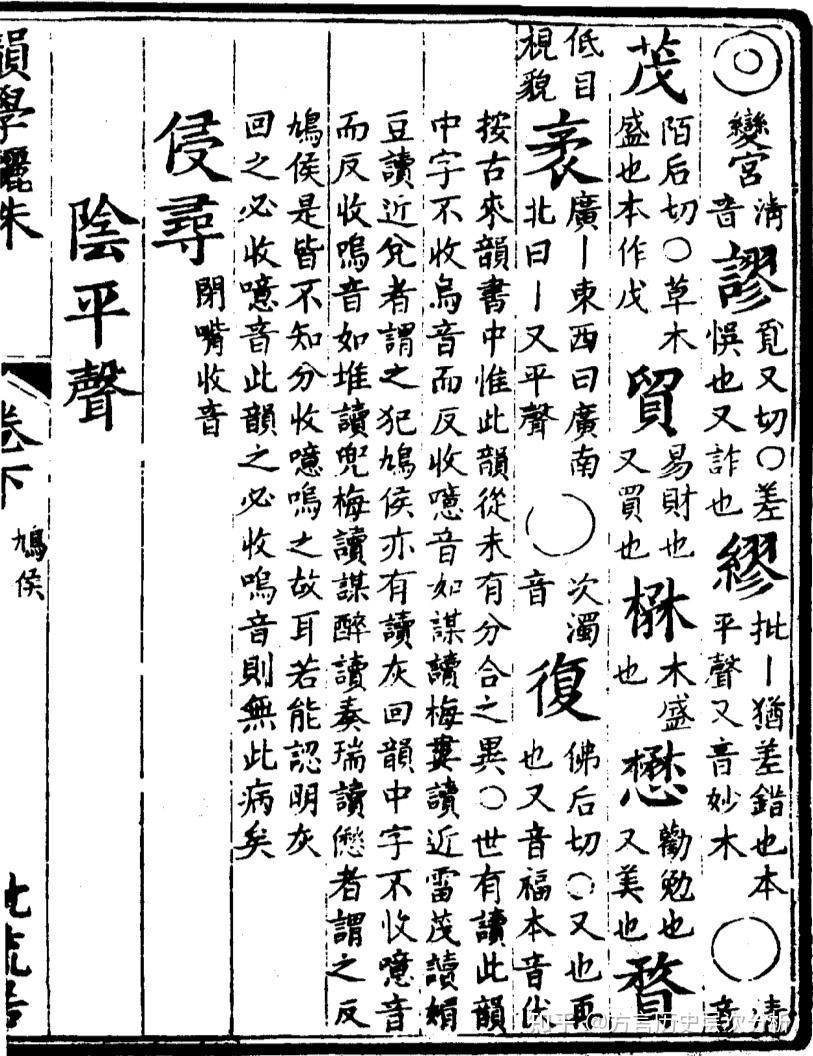 ◎變宮清音謬覓又切〇差悞也又詐也繆批丨猶差錯也本平聲又音妙木〇清音
茂陌后切〇草木盛也本作戊貿易財也又買也楙木盛也懋勸勉也又美也瞀
低目視貌袤廣丨東西曰廣南北曰丨又平聲〇次濁音復佛后切〇又也再也又音福本音伏
按古來韻書中惟此韻從未有分合之異〇世有讀此韻
中字不收烏音而反收噫音如謀讀梅婁讀近雷茂讀媚
豆讀近兊者謂之犯鳩侯亦有讀灰回韻中字不收噫音
而反收嗚音如堆讀兜梅讀謀醉讀奏瑞讀僽者謂之反
鳩侯是皆不知分收噫嗚之故耳若能認明灰
回之必收噫音此韻之必收嗚音則無此病矣
侵尋閉嘴收音
陰平聲
韻學驪朱
卷下
鳩侯
知乎 @方言历史层次分析